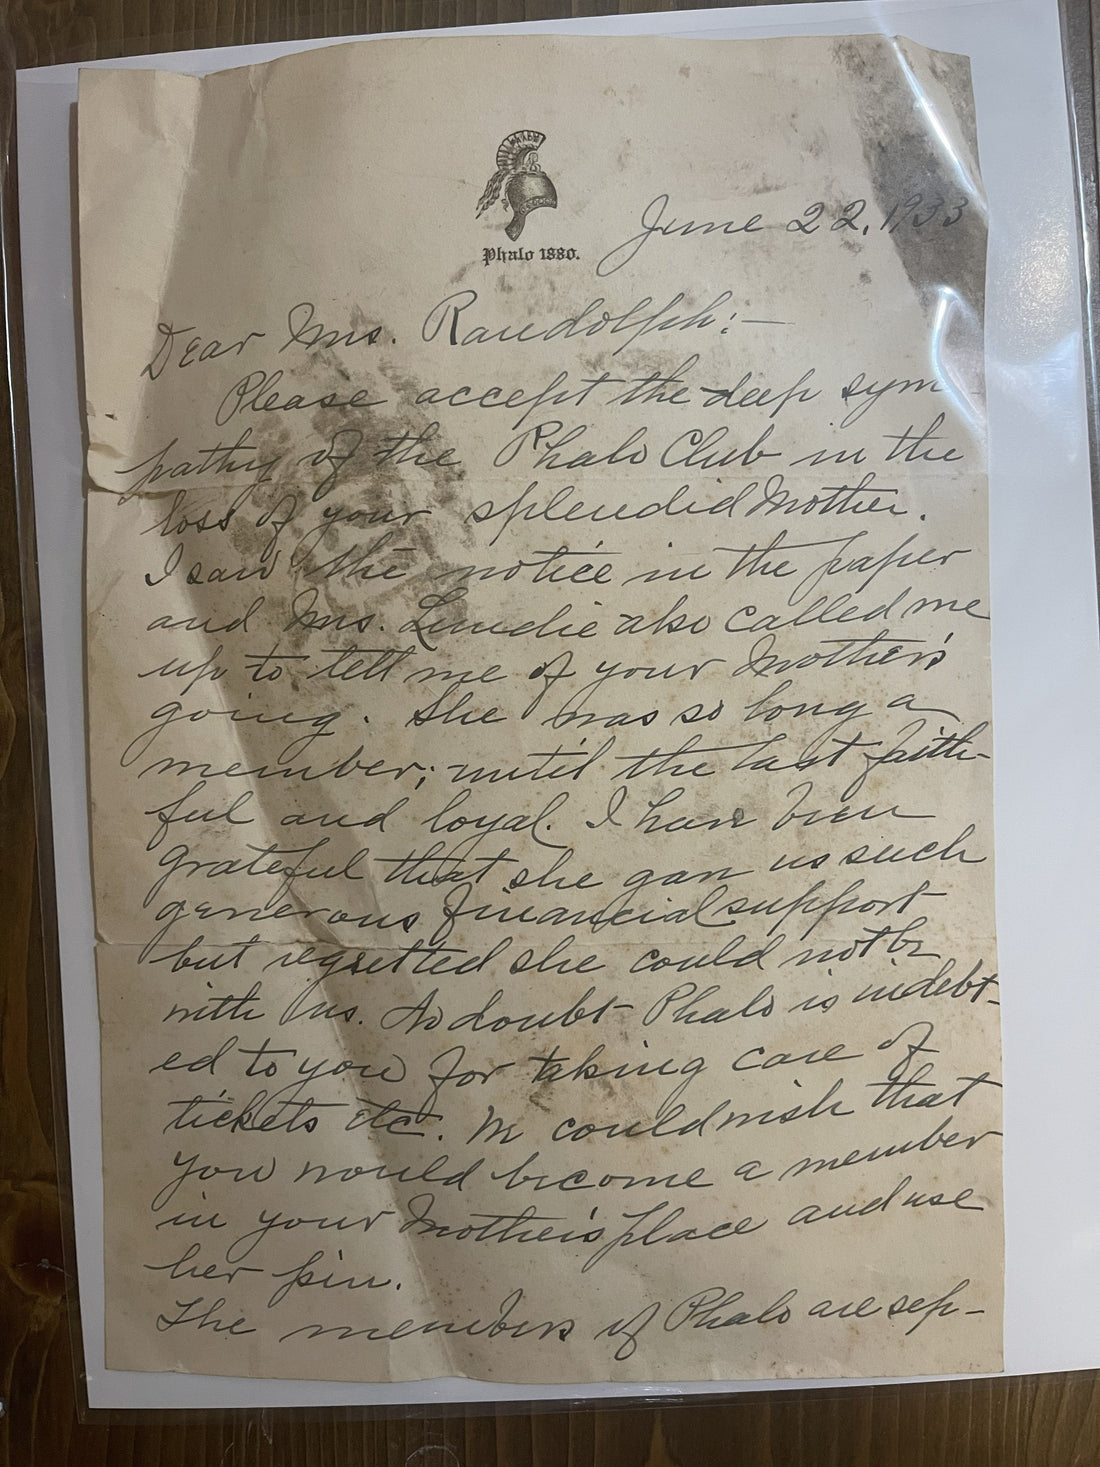 Phalo 1880.
June 22, 1933
Dear Mrs. Randolph:—
Please accept the deep sym
pathy of the Phalo Club in the
loss of your splendid Mother.
I saw the notice in the paper
and Mrs. Lundie also called me
up to tell me of your Mother's
going. She was so long a
member; until the last faith-
ful and loyal. I have been
grateful that she gave us such
generous financial support
but regretted she could not be
with us. No doubt Phalo is indebt-
ed to you for taking care of
tickets etc. We could wish that
you would become a member
in your Mother's place and use
her pin.
The members of Phalo are sep-